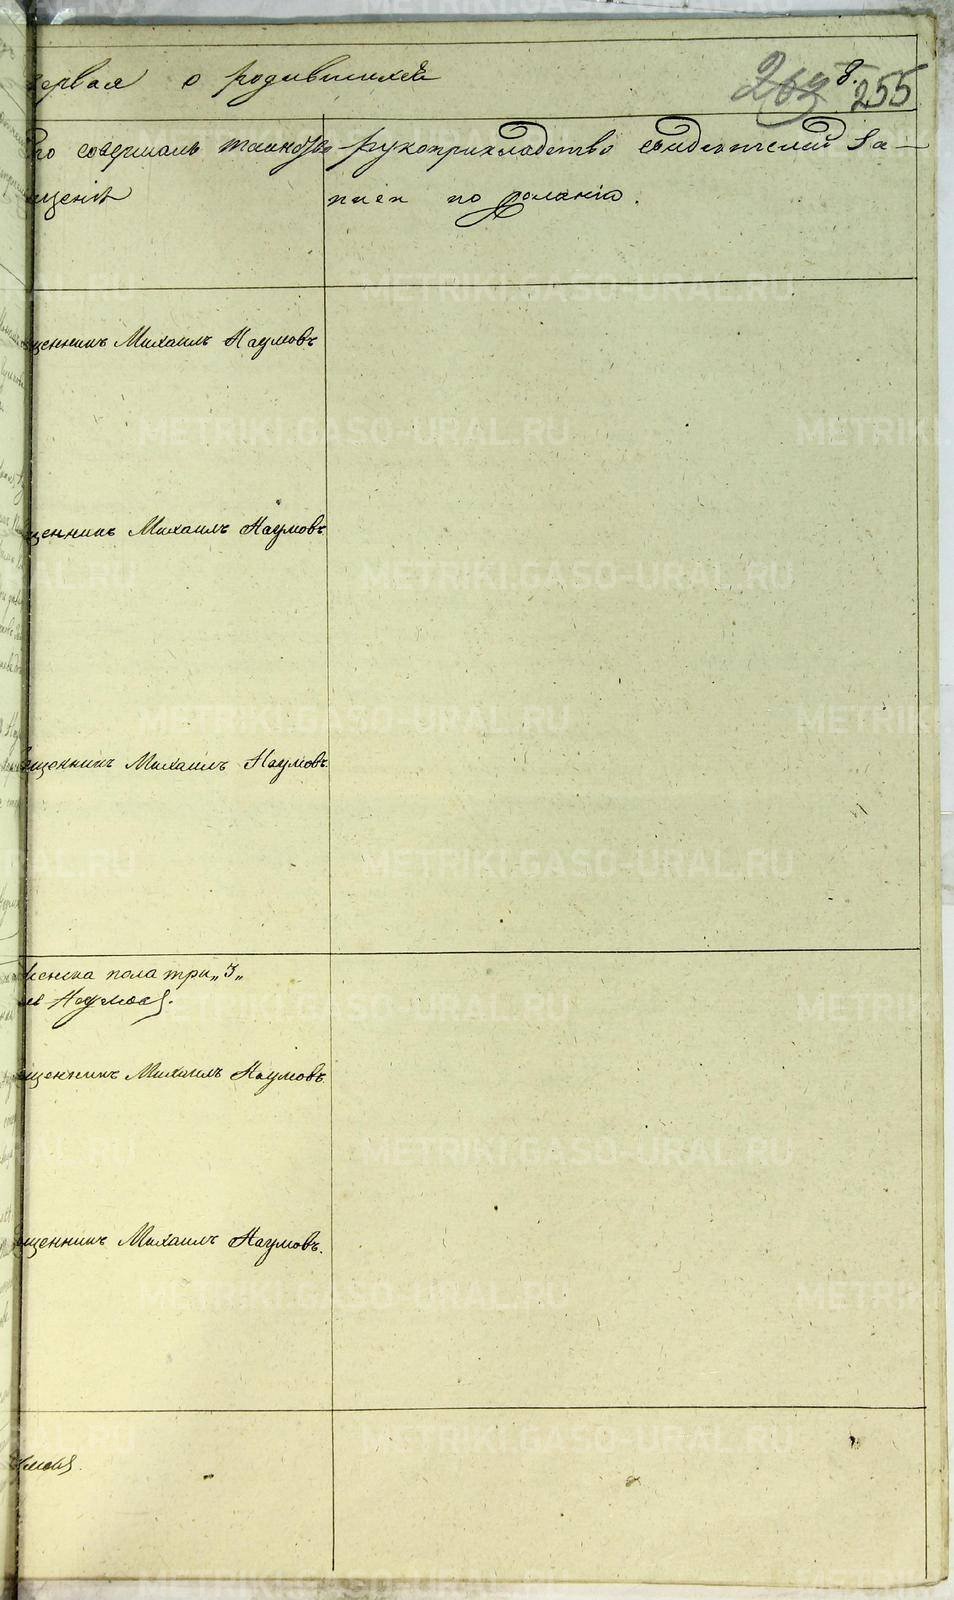 первая о родившихся 263 8. 255
Кто совершалъ таинство рукоприкладство свидѣтелей за-
щенія писи по желанію.
щенникъ Михаилъ Наумовъ
щенникъ Михаилъ Наумовъ
щенникъ Михаилъ Наумовъ.
женска пола три „3„
Наумовъ.
щенникъ Михаилъ Наумовъ.
щенникъ Михаилъ Наумовъ.
METRIKI.GASO-URAL.RU